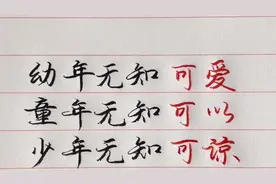 幼年无知 可爱
童年无知 可以
少年无知 可谅